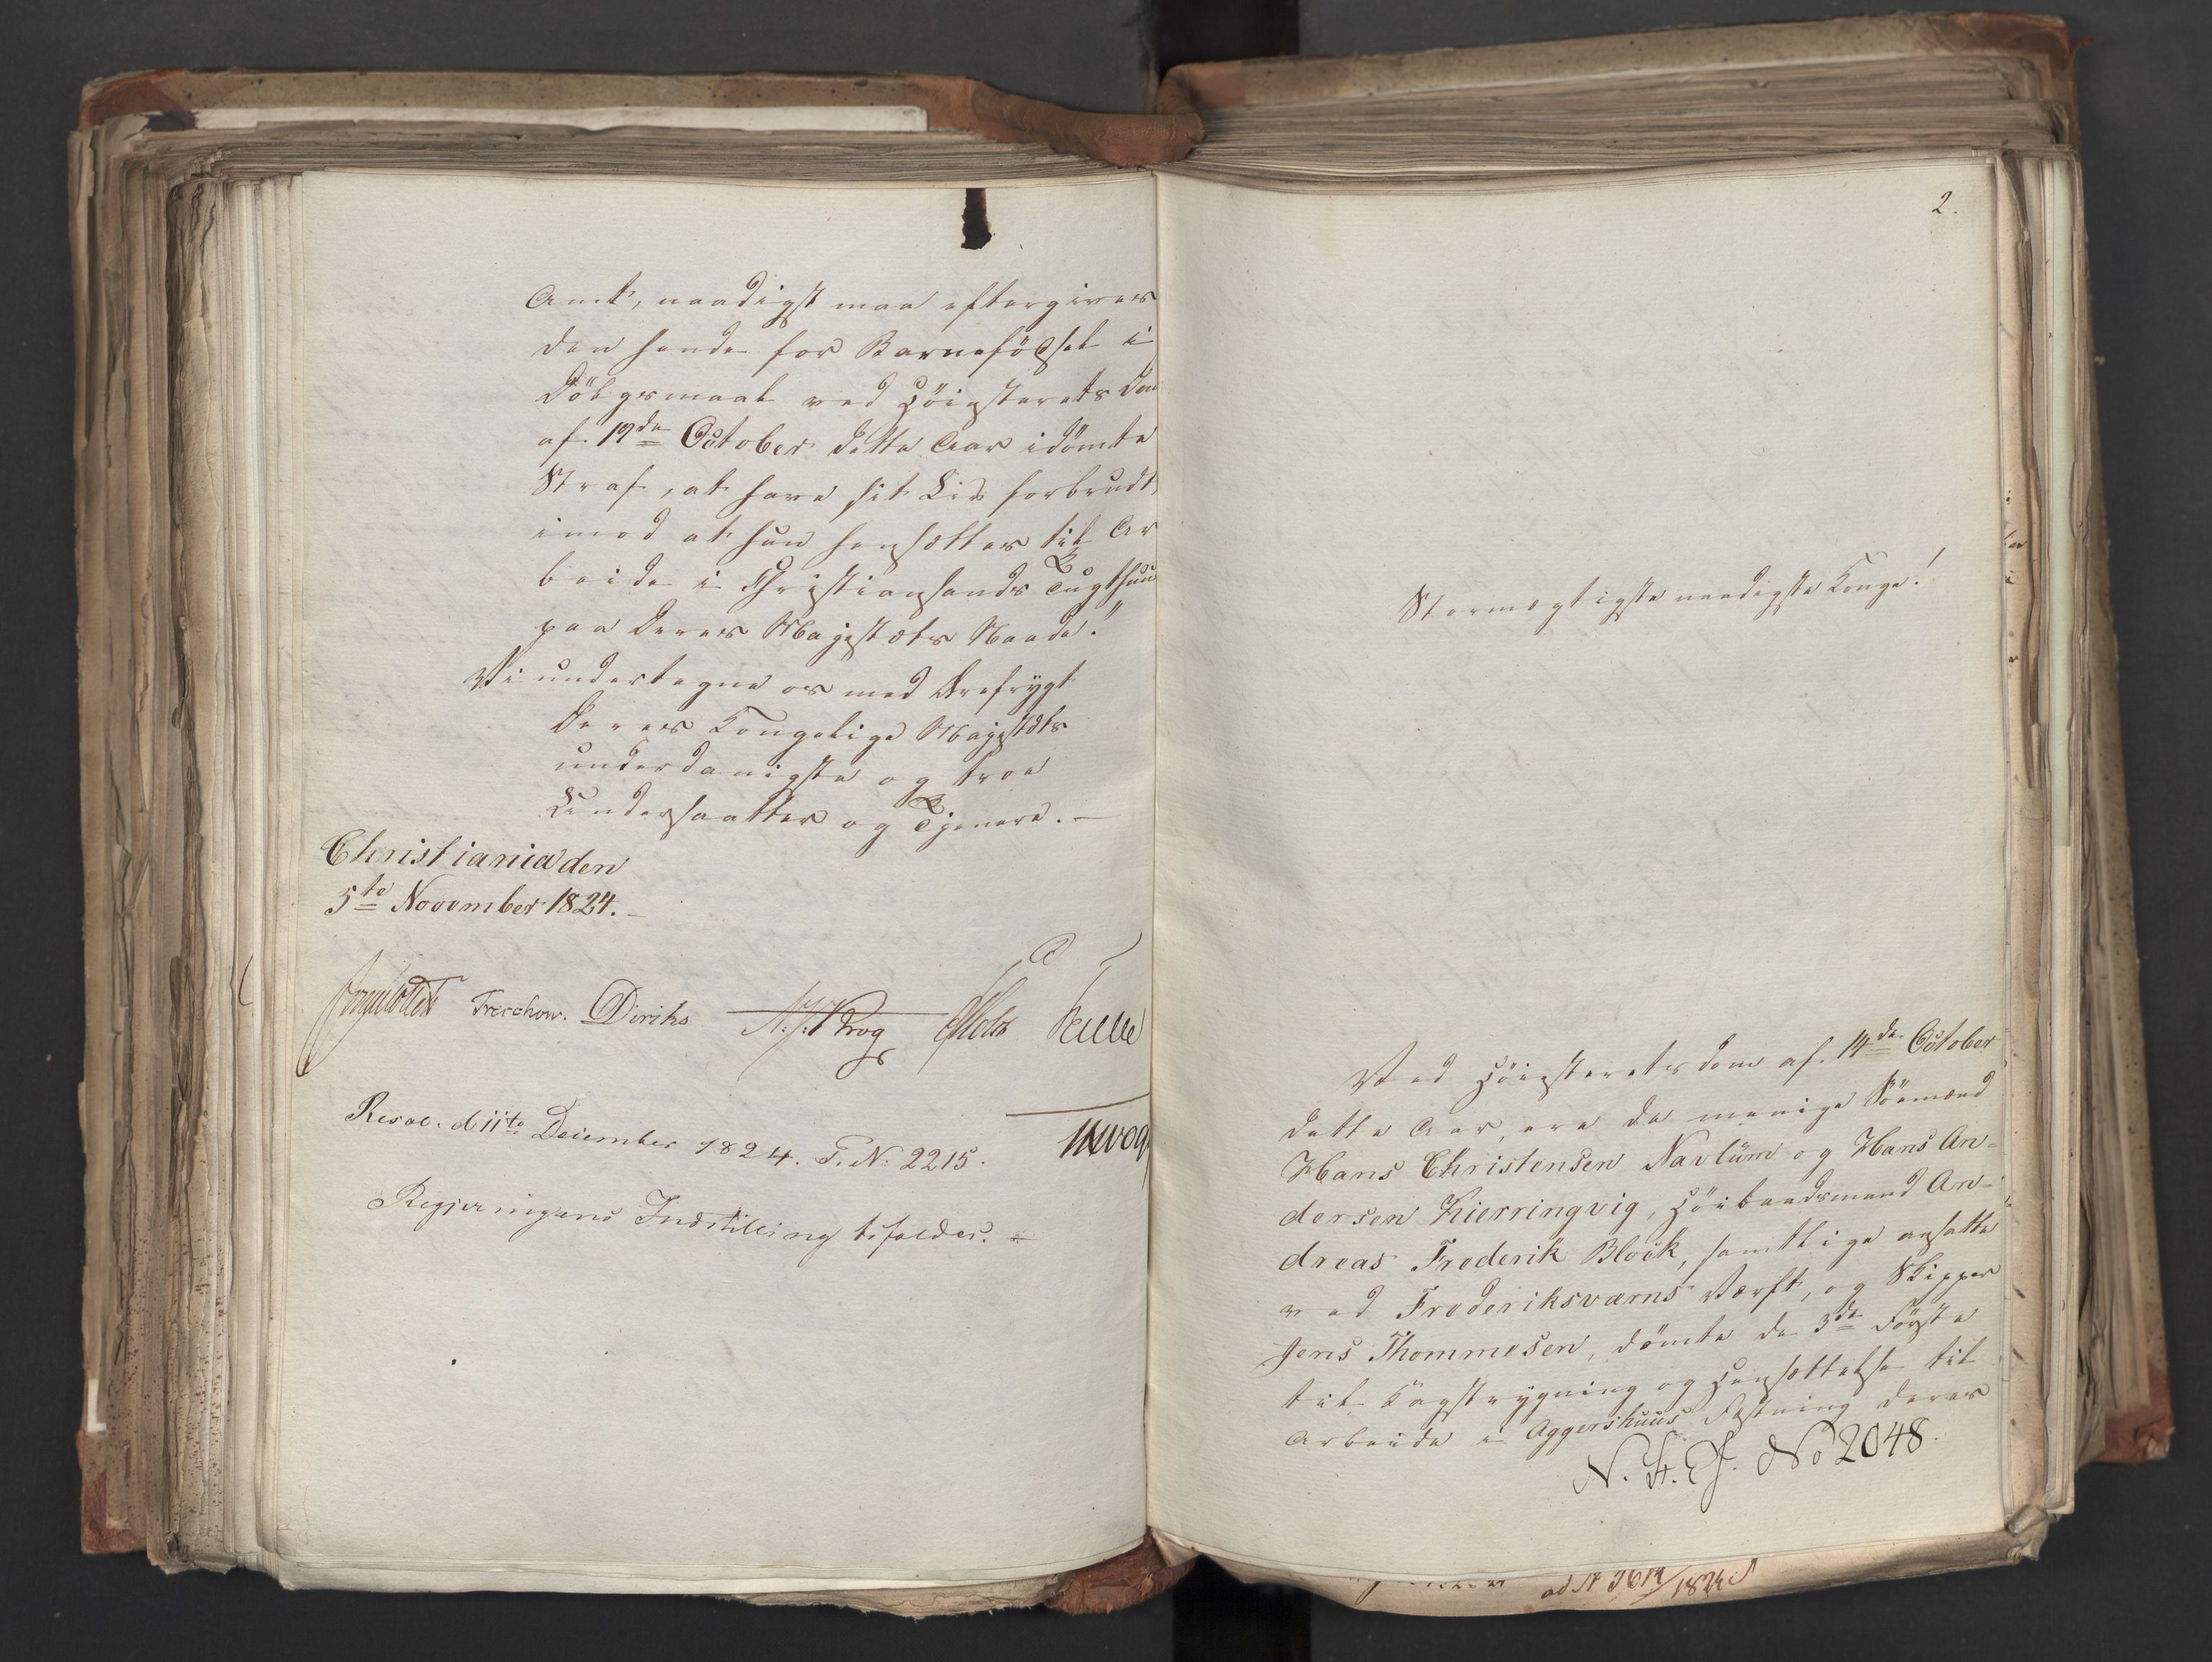 Amt, naadigst maa eftergives
den hende for Barnefödsel i
Dölgsmaal ved Höiesterets Dom
af 19de October dette Aar idömte
Straf, at have sit Liv forbrudt,
imod at hun hensættes til Ar
beide i Christiansands Tugthuus
paa Deres Majestæts Naade."
Vi undertegne os med Ærefrygt
Deres Kongelige Majestæts
underdanigste og troe
Undersaatter og Tjenere. —
Christiania den
5te November 1824. —
Treschow. Diriks N. J. Krog
Resol. d 11te December 1824. P. N: 2215.
Regjeringens Indstilling bifaldes.
2.
Stormægtigste naadigste Konge!
Ved Höiesteretsdom af 14de October
dette Aar, ere de menige Sömænd
Hans Christensen Navlüm og Hans An-
dersen Kierringvig, Höibaadsmand An-
dreas Frederik Block, samtlige ansatte
ved Frederiksværns Værft, og Skipper
Jens Thommesen, dömte de 3de Förste
til Kagstrygning og Hensættelse til
Arbeide i Aggershuus Fæstning deres
N. St. E. No 2048.